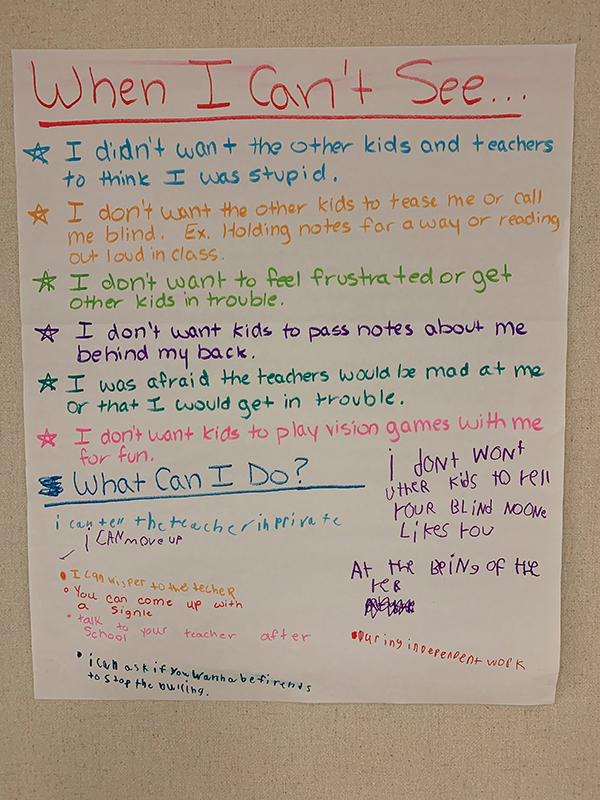 When I Can't See...
I didn't want the other kids and teachers
to think I was stupid.
I don't want the other kids to tease me or call
me blind. Ex. Holding notes far away or reading
out loud in class.
I don't want to feel frustrated or get
other kids in trouble.
I don't want kids to pass notes about me
behind my back.
I was afraid the teachers would be mad at me
or that I would get in trouble.
I don't want kids to play vision games with me
for fun.
What Can I Do?
i can tell the teacher in private
I CAN move up
I CAN wisper to the techer
You can come up with
a signle
talk to your teacher after
School
i can ask if you wanna be firends
to stop the bulling.
i dont wont
uther kids to tell
YOUR BLIND NOONE
LIKES YOU
At the BeiNg of the
yeR
During independent work